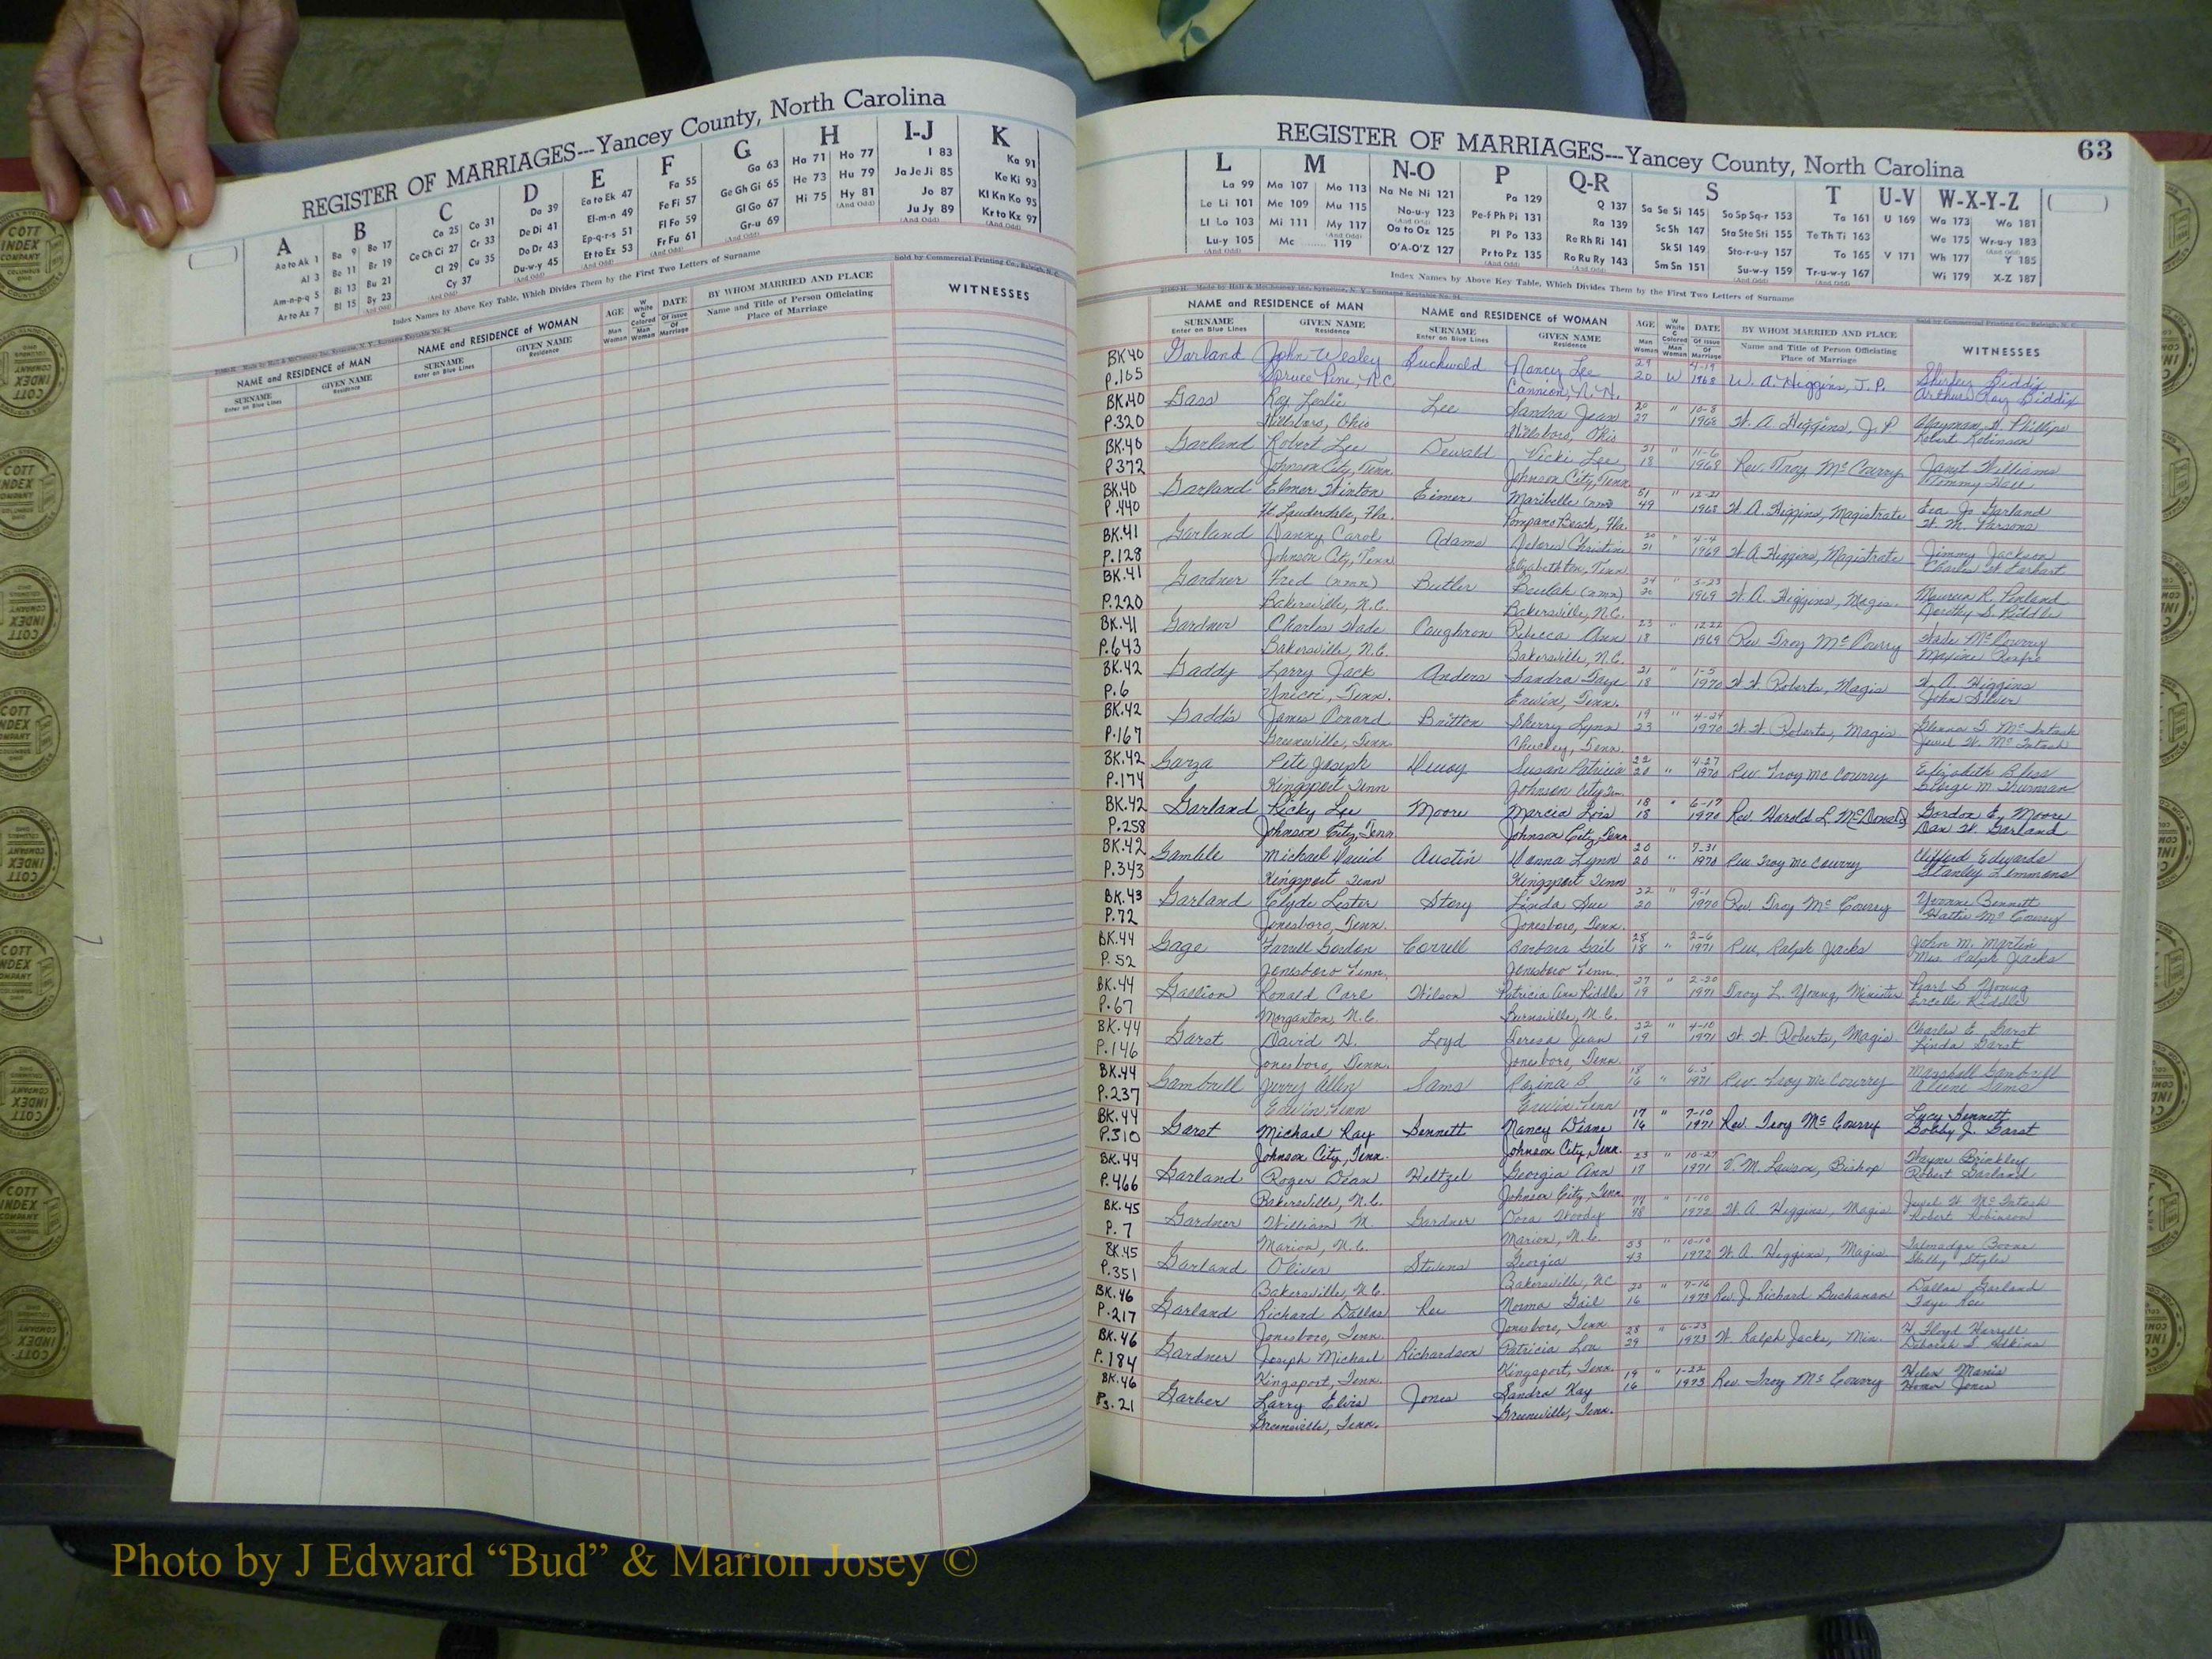 REGISTER OF MARRIAGES---Yancey County, North Carolina
A B C D E F G H I-J K
Aa to Ak 1 Ba 9 Bo 17 Ca 25 Co 31 Da 39 Ea to Ek 47 Fa 55 Ga 63 Ha 71 Ho 77 I 83 Ka 91
Al 3 Be 11 Br 19 Ce Ch Ci 27 Cr 33 De Di 41 El-m-n 49 Fe Fi 57 Ge Gh Gi 65 He 73 Hu 79 Ja Je Ji 85 Ke Ki 93
Am-n-p-q 5 Bi 13 Bu 21 Cl 29 Cu 35 Do Dr 43 Ep-q-r-s 51 Fl Fo 59 Gl Go 67 Hi 75 Hy 81 Jo 87 Kl Kn Ko 95
Ar to Az 7 Bl 15 By 23 Cy 37 Du-w-y 45 Et to Ez 53 Fr Fu 61 Gr-u 69 (And Odd) Ju Jy 89 Kr to Kz 97
Index Names by Above Key Table, Which Divides Them by the First Two Letters of Surname
Sold by Commercial Printing Co., Raleigh, N. C.
NAME and RESIDENCE of MAN
SURNAME
Enter on Blue Lines
GIVEN NAME
Residence
NAME and RESIDENCE of WOMAN
SURNAME
Enter on Blue Lines
GIVEN NAME
Residence
AGE
Man
Woman
W White
C Colored
Man
Woman
DATE
Of Issue
Of Marriage
BY WHOM MARRIED AND PLACE
Name and Title of Person Officiating
Place of Marriage
WITNESSES
REGISTER OF MARRIAGES---Yancey County, North Carolina
63
L M N-O P Q-R S T U-V W-X-Y-Z
La 99 Ma 107 Mo 113 Na Ne Ni 121 Pa 129 Q 137 Sa Se Si 145 So Sp Sq-r 153 Ta 161 U 169 Wa 173 Wo 181
Le Li 101 Me 109 Mu 115 No-u-y 123 Pe-f Ph Pi 131 Ra 139 Sc Sh 147 Sta Ste Sti 155 Te Th Ti 163 We 175 Wr-u-y 183
Ll Lo 103 Mi 111 My 117 Oa to Oz 125 Pl Po 133 Re Rh Ri 141 Sk Sl 149 Sto-r-u-y 157 To 165 V 171 Wh 177 Y 185
Lu-y 105 Mc 119 O'A-O'Z 127 Pr to Pz 135 Ro Ru Ry 143 Sm Sn 151 Su-w-y 159 Tr-u-w-y 167 Wi 179 X-Z 187
Index Names by Above Key Table, Which Divides Them by the First Two Letters of Surname
NAME and RESIDENCE of MAN
SURNAME
Enter on Blue Lines
GIVEN NAME
Residence
NAME and RESIDENCE of WOMAN
SURNAME
Enter on Blue Lines
GIVEN NAME
Residence
AGE
Man
Woman
DATE
Of Issue
Of Marriage
BY WHOM MARRIED AND PLACE
Name and Title of Person Officiating
Place of Marriage
WITNESSES
BK 40 Garland John Wesley Buchwald Nancy Lee 29 4-19 Shirley Biddix
P.105 Spruce Pine, N.C. 20 W 1968 W. A. Higgins, J. P. Arthur Ray Biddix
BK.40 Gass Roy Leslie Lee Sandra Jean 20 " 10-8
P.320 Hillsboro, Ohio Hillsboro, Ohio 27 1968 W. A. Higgins, J. P Robert Robinson
BK.40 Garland Robert Lee Dewald Vicki Lee 21 " 11-6 Janet Williams
P372 Johnson City, Tenn. Johnson City, Tenn. 18 1968 Rev. Troy McCourry
BK.40 Garland Elmer Hinton Eimer Maribelle (nmn) 51 " 12-21
P.440 Ft. Lauderdale, Fla. Pompano Beach, Fla. 49 1968 W. A. Higgins, Magistrate
BK.41 Garland Danny Carol Adams Delores Christine 20 " 4-4 Jimmy Jackson
P.128 Johnson City, Tenn. Elizabethton, Tenn. 21 1969 W. A. Higgins, Magistrate
BK.41 Gardner Fred (nmn) Butler Beulah (nmn) 24 " 5-23
P.220 Bakersville, N.C. Bakersville, N.C. 20 1969 W. A. Higgins, Magis. Dorothy S. Riddle
BK.41 Gardner Charles Wade Caughron Rebecca Ann 23 " 12-22 Wade McCourry
P.643 Bakersville, N.C. Bakersville, N.C. 18 1969 Rev Troy McCourry
BK.42 Gaddy Larry Jack Anders Sandra Faye 21 " 1-5 W. A. Higgins
P.6 Unicoi, Tenn. Erwin, Tenn. 18 1970 W. W. Roberts, Magis John Silver
BK.42 Gaddis James Conard Britton Sherry Lynn 19 " 4-24
P.167 Greeneville, Tenn. Chuckey, Tenn. 23 1970 W. W. Roberts, Magis Jewel W. McIntosh
BK.42 Garza Pete Joseph Susan Patricia 22 4-27 Elizabeth Bless
P.174 Kingsport Tenn Johnson City Tenn. 20 " 1970 Rev. Troy McCourry George M. Thurman
BK.42 Garland Ricky Lee Moore Marcia Lois 18 " 6-17 Gordon E. Moore
P.258 Johnson City, Tenn Johnson City, Tenn 18 1970 Rev. Harold L. McDonald Dan W. Garland
BK.42 Gamble Michael David Austin Donna Lynn 20 7-31 Clifford Edwards
P.343 Kingsport Tenn Kingsport Tenn 20 " 1970 Rev Troy McCourry Stanley Lemmons
BK.43 Garland Clyde Lester Story Linda Sue 22 " 9-1 Yvonne Bennett
P.72 Jonesboro, Tenn. Jonesboro, Tenn. 20 1970 Rev. Troy McCourry Hattie McCourry
BK.44 Gage Farrell Gordon Correll Barbara Gail 28 2-6 John M. Martin
P.52 Jonesboro Tenn. Jonesboro Tenn. 18 " 1971 Rev. Ralph Jacks Mrs. Ralph Jacks
BK.44 Ronald Carl Wilson Patricia Ann Riddle 27 " 2-20 Pearl B. Young
P.67 Morganton, N.C. Burnsville, N.C. 19 1971 Troy L. Young, Minister
BK.44 Garst David H. Loyd Teresa Jean 22 " 4-10 Charles E. Garst
P.146 Jonesboro, Tenn. Jonesboro, Tenn. 19 1971 W. W. Roberts, Magis. Linda Garst
BK.44 Gambrell Jerry Allen Sams Rozina B. 18 6-3 Marshall Gambrell
P.237 Erwin Tenn Erwin Tenn 16 " 1971 Rev. Troy McCourry Arlene Sams
BK.44 Garst Michael Ray Bennett Nancy Diane 17 " 7-10 Lucy Bennett
P.310 Johnson City, Tenn. Johnson City, Tenn. 16 1971 Rev. Troy McCourry Bobby J. Garst
BK.44 Garland Roger Dean Heltzel Georgia Ann 23 " 10-27 Wayne Brinkley
P.466 Bakersville, N.C. Johnson City, Tenn. 17 1971 V. M. Lawson, Bishop Robert Garland
BK.45 Gardner William M. Gardner Dora Woody 77 " 1-10 Jewel W. McIntosh
P.7 Marion, N.C. Marion, N.C. 78 1972 W. A. Higgins, Magis Robert Robinson
BK.45 Garland Oliver Stevens Georgia 53 " 10-10 Talmadge Boone
P.351 Bakersville, N.C. Bakersville, N.C 43 1972 W. A. Higgins, Magis.
BK.46 Garland Richard Dallas Norma Gail 20 " 7-16 Dallas Garland
P.217 Jonesboro, Tenn. Jonesboro, Tenn 16 1973 Rev. J. Richard Buchanan
BK.46 Gardner Joseph Michael Richardson Patricia Lou 28 " 6-23 H. Floyd Harrell
P.184 Kingsport, Tenn. Kingsport, Tenn. 29 1973 W. Ralph Jacks, Min. Deborah S. Adkins
BK.46 Garber Larry Elvis Jones Sandra Kay 19 " 1-22 Helen Manis
Pg. 21 Greeneville, Tenn. Greeneville, Tenn. 16 1973 Rev. Troy McCourry Homer Jones
COTT
INDEX
COMPANY
Photo by J Edward “Bud” & Marion Josey ©